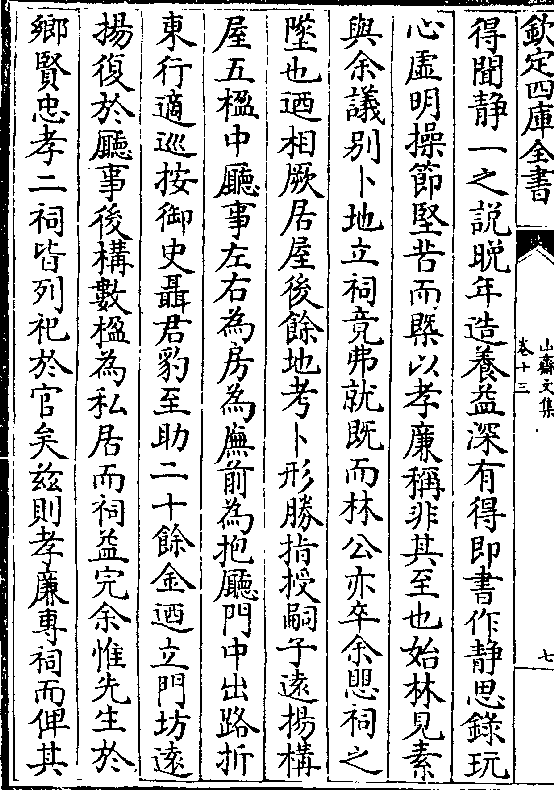 欽定四庫全書
山齋文集
卷十三
七
得聞静一之説晩年造養益深有得即書作静思錄玩
心虚明操節堅苦而槩以孝廉稱非其至也始林見素
與余議别卜地立祠竟弗就既而林公亦卒余愳祠之
墜也迺相厥居屋後餘地考卜形勝指授嗣子遠揚構
屋五楹中廳事左右為房為廡前為抱廳門中出路折
東行適巡按御史聶君豹至助二十餘金迺立門坊遠
揚復於廳事後構數楹為私居而祠益完余惟先生於
鄉賢忠孝二祠皆列祀於官矣兹則孝廉專祠而俾其